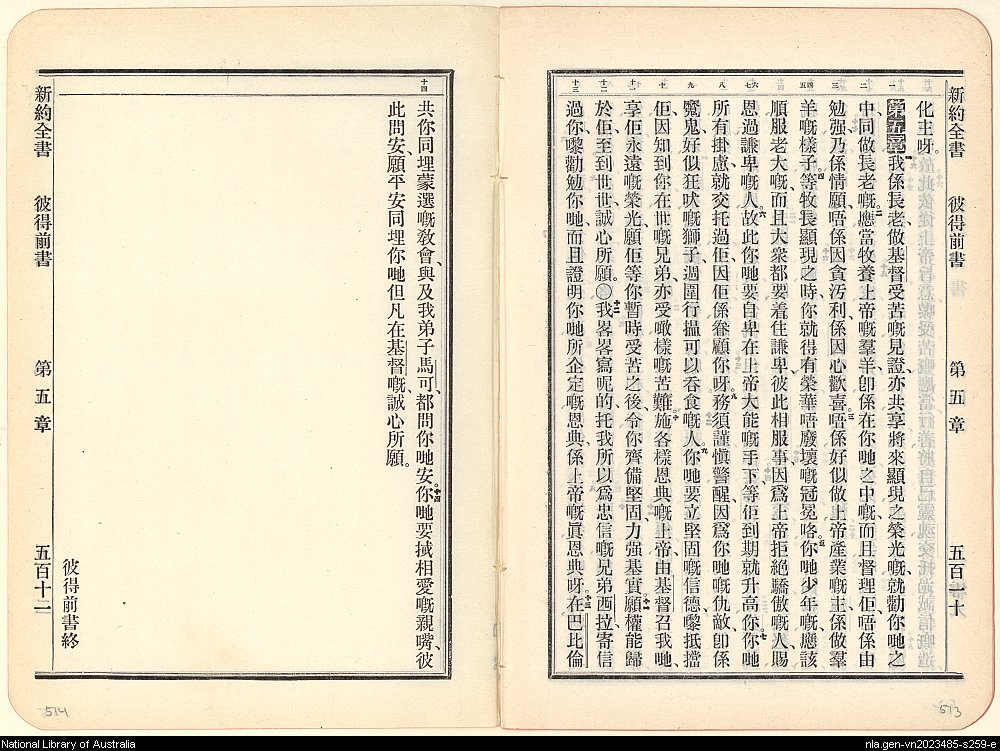 新約全書 彼得前書 第五章 五百一十
化主呀。
第五章 一我係長老做基督受苦嘅見證亦共享將來顯現之榮光嘅就勸你哋之
中同做長老嘅二應當牧養上帝嘅羣羊卽係在你哋之中嘅而且督理佢唔係由
勉强乃係情願唔係因貪汚利係因心歡喜三唔係好似做上帝產業嘅主係做羣
羊嘅樣子四等牧長顯現之時你就得有榮華唔廢壞嘅冠冕咯五你哋少年嘅應該
順服老大嘅而且大衆都要着住謙卑彼此相服事因爲上帝拒絕驕傲嘅人賜
恩過謙卑嘅人六故此你哋要自卑在上帝大能嘅手下等佢到期就升高你七你哋
所有掛慮就交托過佢因佢係眷顧你呀八務須謹慎警醒因爲你哋仇敵卽係
魔鬼好似狂吠嘅獅子週圍行搵可以吞食嘅人九你哋要立堅固嘅信德嚟抵擋
佢因知到你在世嘅兄弟亦受噉樣嘅苦難十施各樣恩典嘅上帝由基督召我哋
享佢永遠嘅榮光願佢等你暫時受苦之後令你齊備堅固力强基實十一願權能歸
於佢至到世世誠心所願。〇十二我畧畧寫呢的托我所以爲忠信嘅兄弟西拉寄信
過你嚟勸勉你哋而且證明你哋所企定嘅恩典係上帝嘅眞恩典呀十三在巴比倫
共你同埋蒙選嘅敎會與及我弟子馬可都問你哋安。十四你哋要㧜相愛嘅親嘴彼
此問安願平安同埋你哋但凡在基督嘅誠心所願。
彼得前書終
新約全書 彼得前書 第五章 五百十二
514
513
National Library of Australia
nla.gen-vn2023485-s259-e